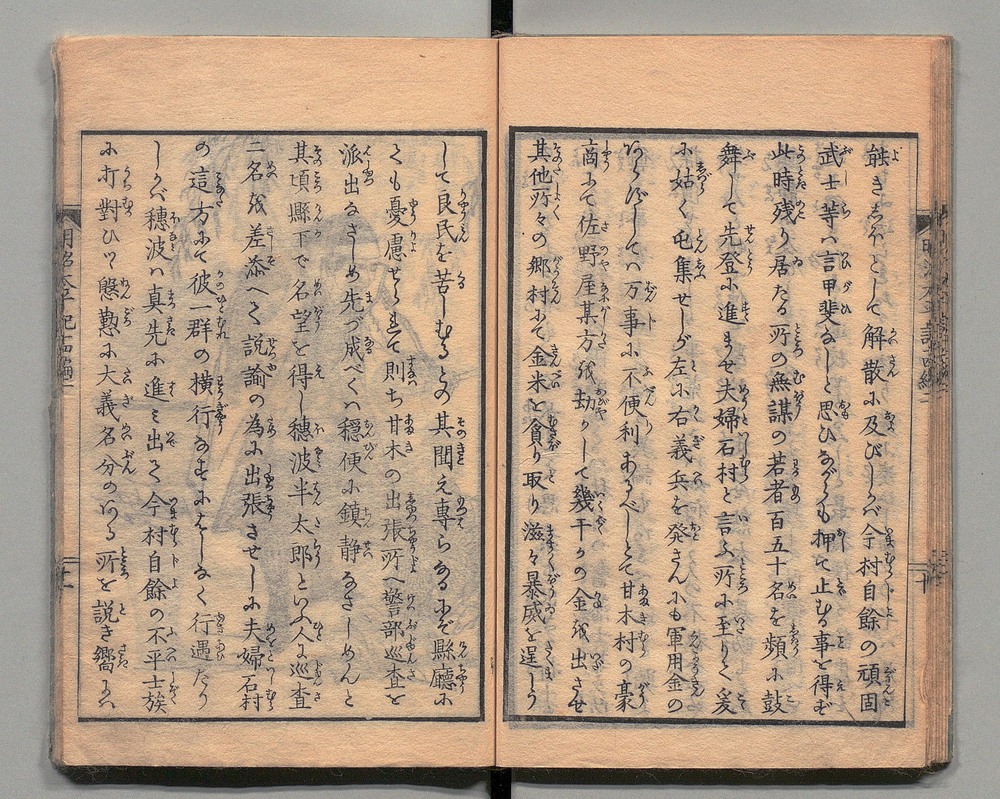 能き志ほとして解散に及びしかバ今村自餘の頑固
武士等ハ言甲斐なしと思ひながらも押て止むる事を得ず
此時残り居たる所の無謀の若者百五十名を頻に鼓
舞して先登に進ませ夫婦石村と言ふ所に至りて爰
に姑く屯集せしが左に右義兵を発さんにも軍用金の
してハ万事に不便利あるべしとて甘木村の豪
商にて佐野屋某方を劫かして幾干かの金を出させ
其他所々の郷村にて金米を貪り取り滋々暴威を逞しう
して良民を苦しむるとの其聞え専らなるにぞ縣廳に
ても憂慮せられて則ち甘木の出張所へ警部巡査を
派出なさしめ先づ成べくハ穏便に鎮静なさしめんと
其頃縣下で名望を得し穂波半太郎といふ人に巡査
二名を差添へて説諭の為に出張させしに夫婦石村
の這方にて彼一群の横行なすにはしなく行遇たり
しかバ穂波ハ真先に進ミ出て今村自餘の不平士族
に打對ひツ懇懃に大義名分のある所を説き嚮に